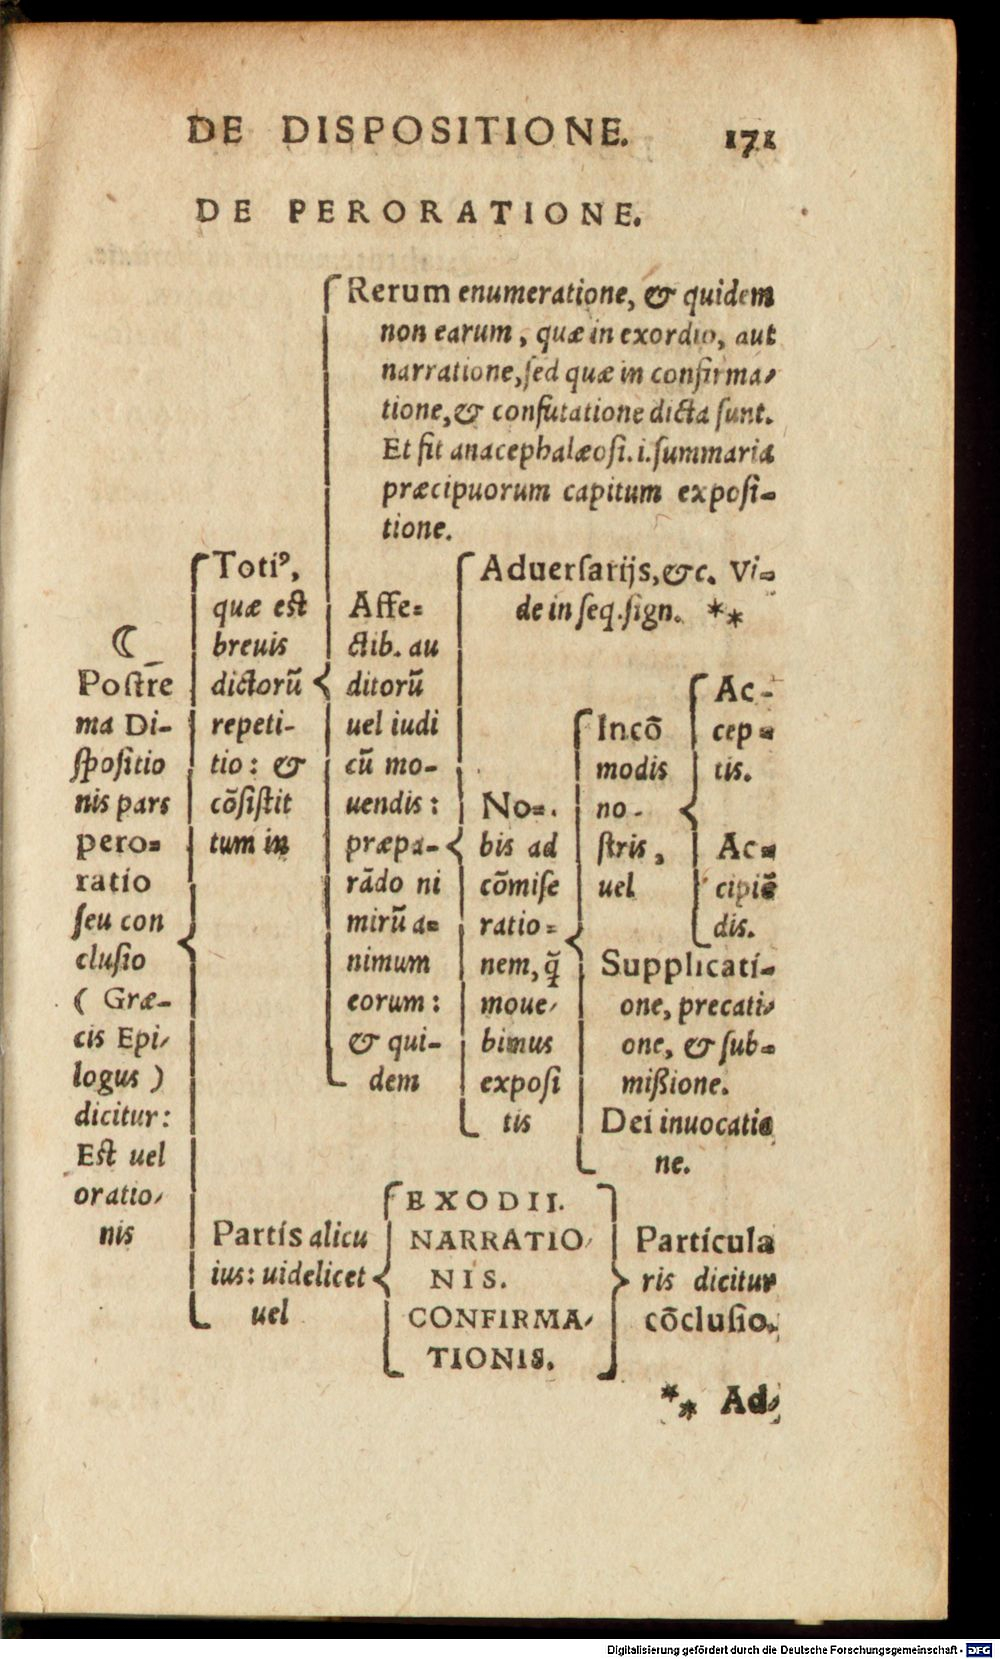 DE DISPOSITIONE. 171
DE PERORATIONE.
☾
Postre̅
ma Di-
spositio
nis pars
pero=
ratio
seu con
clusio
( Græ-
cis Epi/
logus )
dicitur:
Est uel
oratio/
nis
Totiꝰ,
quæ est
breuis
dictorũ
repeti-
tio: &
cõsistit
tum in
Rerum enumeratione, & quidem
non earum, quæ in exordio, aut
narratione, sed quæ in confirma/
tione, & confutatione dicta sunt.
Et fit anacephalæosi. i. summaria
præcipuorum capitum exposi-
tione.
Affe=
ctib. au
ditorũ
uel iudi
cũ mo-
uendis:
præpa-
rãdo ni
mirũ a=
nimum
eorum:
& qui-
dem
Aduersarijs, &c. Vi-
de in seq. sign. **
No=
bis ad
cõmise
ratio=
nem, q̃
moue/
bimus
exposi
tis
Incõ
modis
no-
stris,
uel
Ac-
cep=
tis.
Ac=
cipiẽ
dis.
Supplicati-
one, precati/
one, & sub=
mißione.
Dei inuocatio
ne.
Partis alicu
ius: uidelicet
uel
EXODII.
NARRATIO/
NIS.
CONFIRMA/
TIONIS.
Particula
ris dicitur
cõclusio.
** Ad/
Digitalisierung gefördert durch die Deutsche Forschungsgemeinschaft - DFG